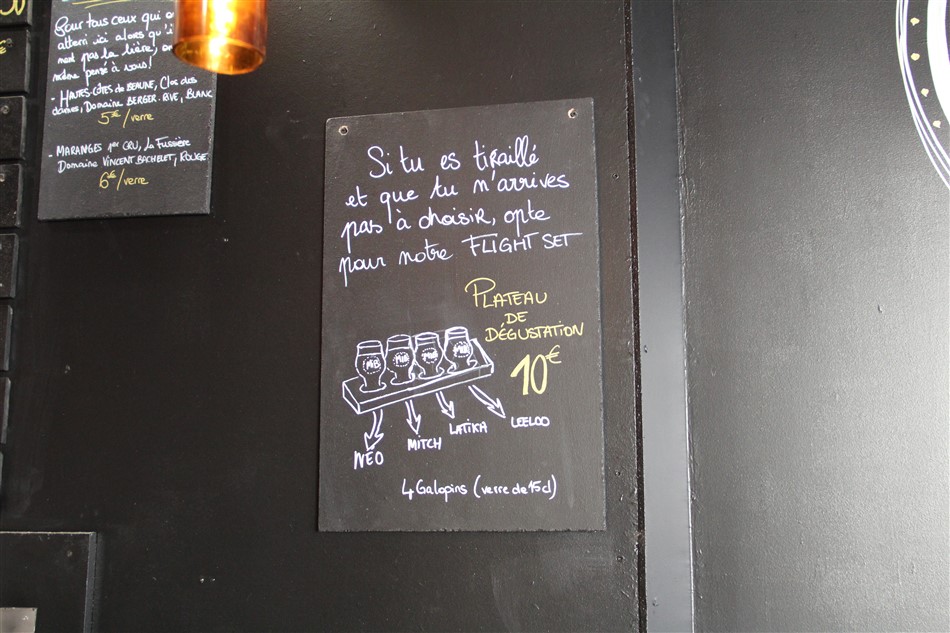 Pour tous ceux qui
atterri ici alors qu'i
ment pas la bière,
même pensé à vous!
- HAUTES-CÔTES de BEAUNE, Clos des
dames, Domaine BERGER-RIVE, BLANC
5€/verre
- MARANGES 1er CRU, La Fussière
Domaine VINCENT BACHELET, ROUGE
6€/verre
Si tu es tiraillé
et que tu n'arrives
pas à choisir, opte
pour notre FLIGHT SET
PLATEAU
DE
DÉGUSTATION
10€
NÉO
MITCH
LATIKA
LEELOO
4 Galopins (verre de 15cl)